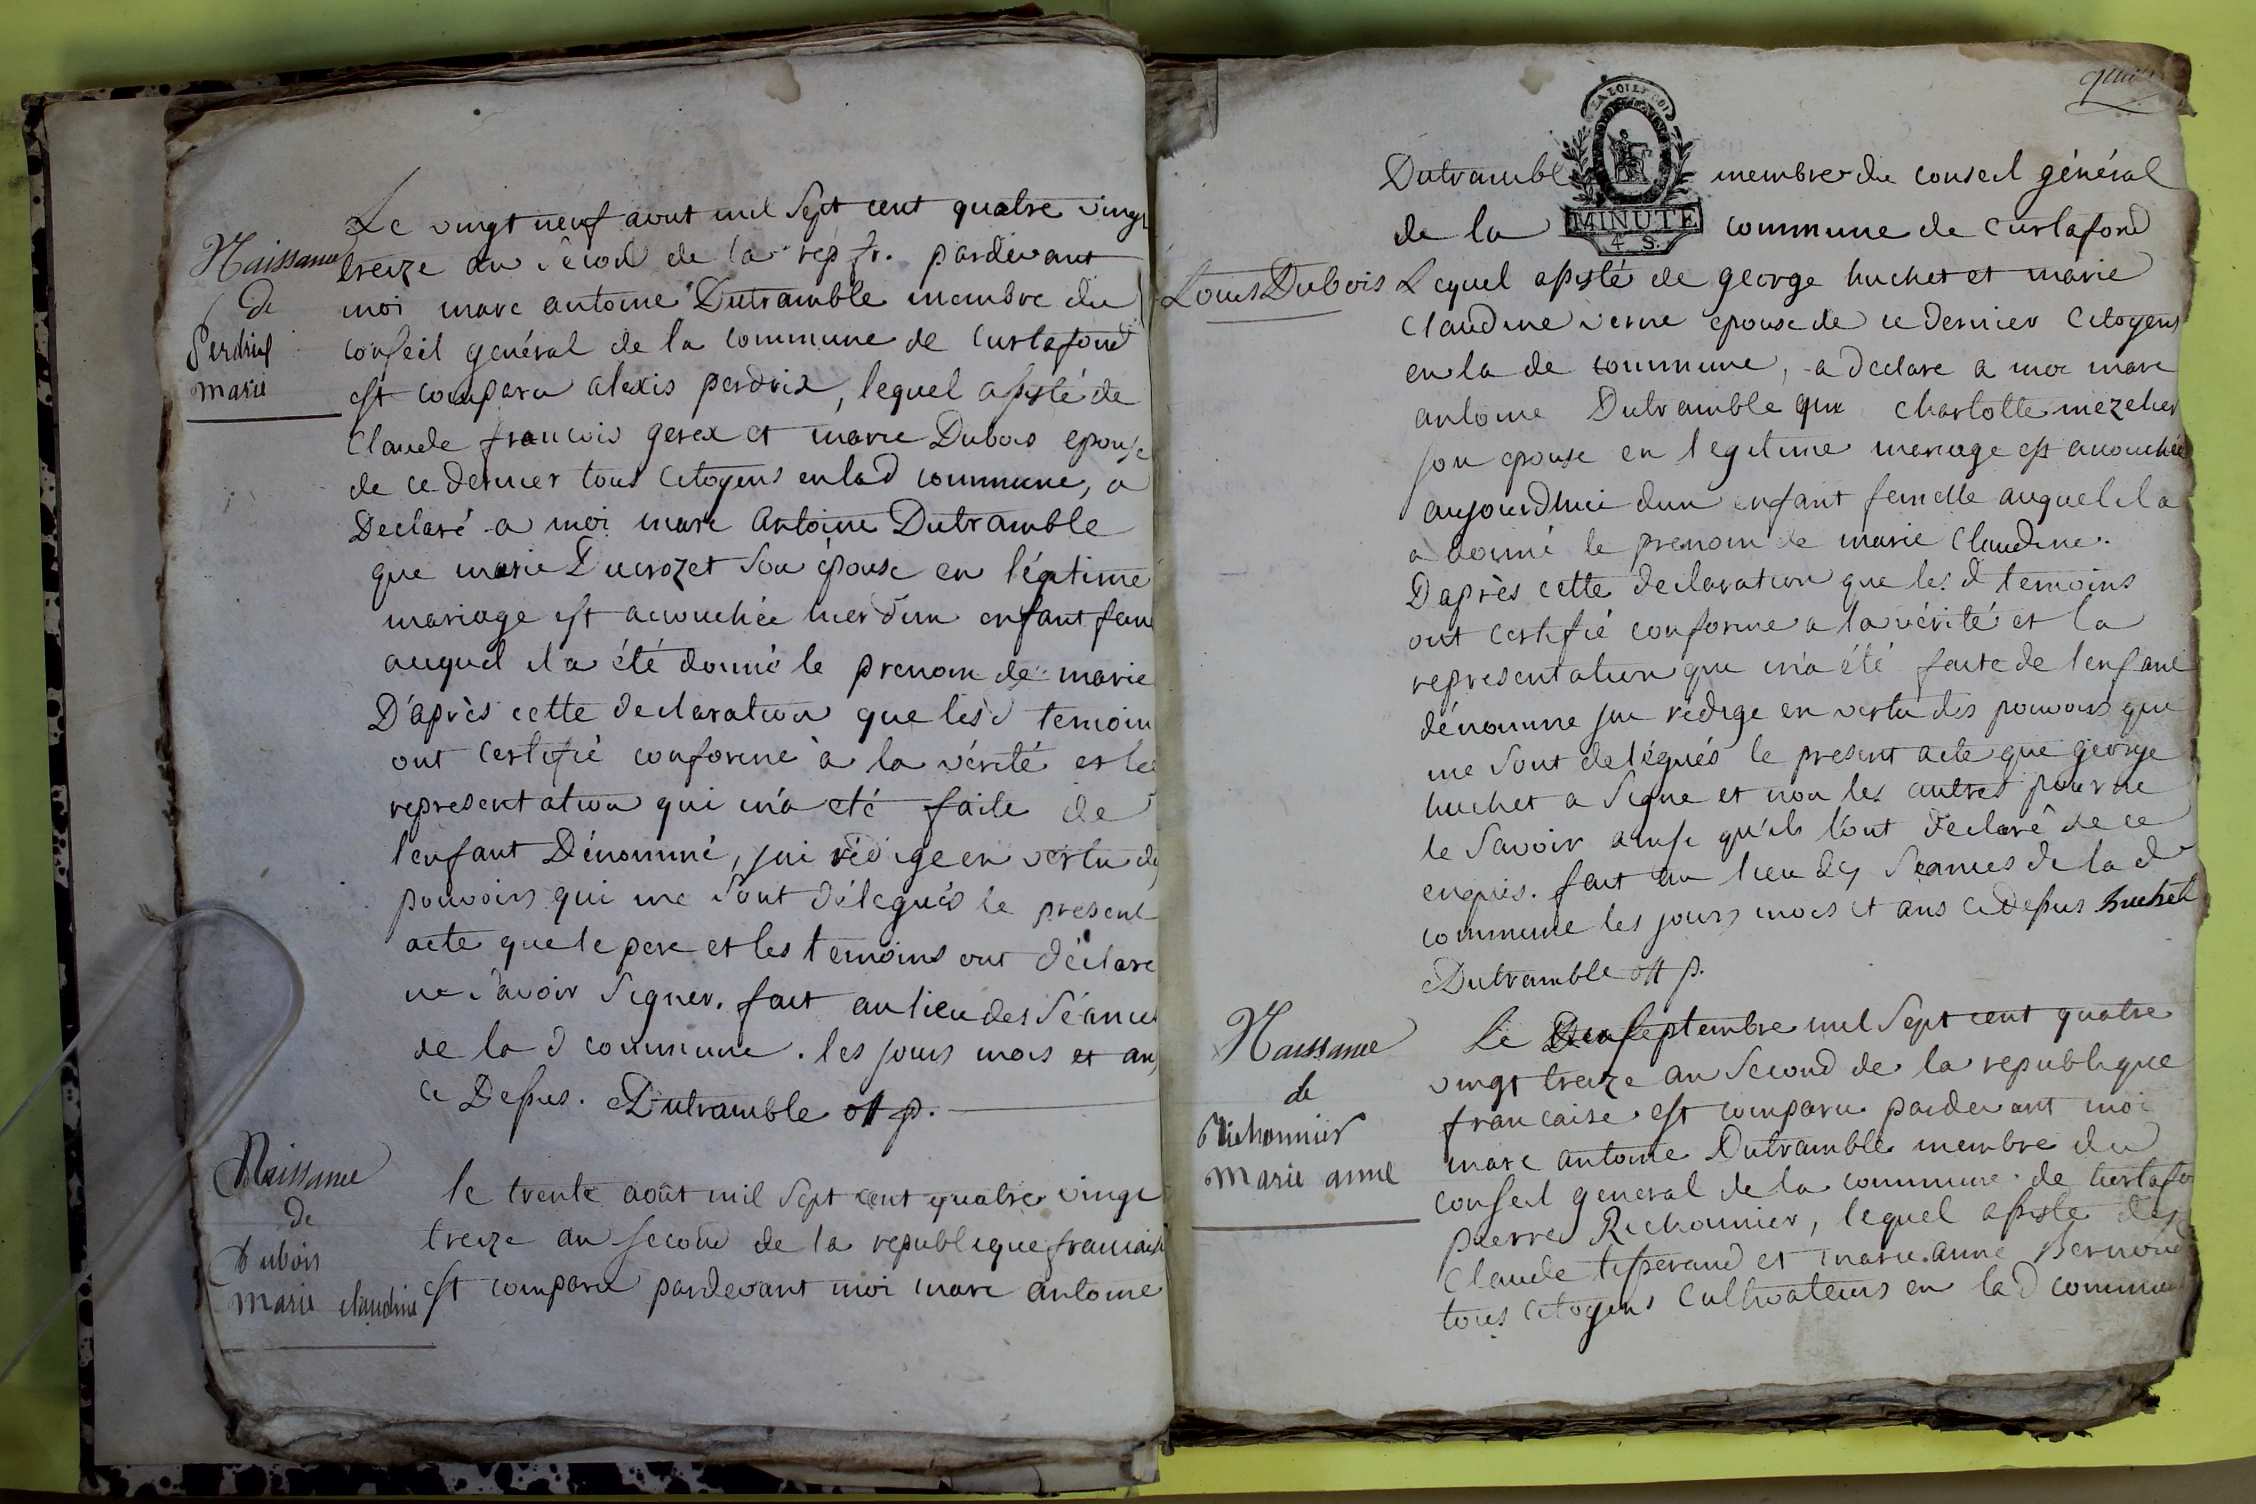 Naissance
de
Perdrix
marie
Le vingt neuf aout mil Sept cent quatre vingt
treize an second de la rep fr. pardevant
moi marc antoine Dutramble membre du
conseil genéral de la commune de Curtafond
est comparu alexis perdrix, lequel assisté de
Claude francois gerex et marie Dubois epouse
de ce dernier tous Citoyens en lad commune, a
Declaré a moi marc Antoine Dutramble
que marie Ducrozet Son épouse en légitime
mariage est accouchée hier d'un enfant fem
auquel il a été donné le prenom de marie
D'après cette declaration que les d temoin
ont certifié conforme à la vérité et la
representation qui m'a eté faite de
l'enfant Dénommé, jai rédigé en vertu des
pouvoirs qui me Sont délegués le present
acte que le pere et les temoins ont déclaré
ne Savoir Signer. fait au lieu des Séances
de la d commune. les jours mois et an
ce Dessus. Dutramble off p.
Naissance
de
Dubois
marie claudine
le trente août mil Sept cent quatre vingt
treize an second de la republique francaise
est comparu pardevant moi marc antoine
Dutramble membre du conseil général
de la commune de Curtafond
LA LOI LE ROI
MINUTE
4 S.
Louis Dubois Lequel assisté de george huchet et marie
Claudine verne epouse de ce dernier Citoyens
en la de commune, a declaré a moi marc
antoine Dutramble que Charlotte
son epouse en legitime mariage est accouchée
aujourdhui dun enfant femelle auquel il a
a donné le prenom de marie Claudine.
Daprès cette declaration que les d temoins
ont certifié conforme a la vérité et la
representation que m'a été faite de l'enfant
dénommé jai rédigé en vertu des pouvoirs que
me Sont delégués le present acte que george
huchet a Signe et non les autres pour ne
le Savoir ainsi qu'ils l'ont déclaré de ce
enquis. fait au lieu des Séances de la d
commune les jours mois et ans ce dessus huchet
Dutramble off p.
Naissance
de
Richonnier
marie anne
Le Deux Septembre mil Sept cent quatre
vingt treize an Second de la republique
francaise est comparu pardevant moi
marc antoine Dutramble membre du
conseil general de la commune de Curtafo
pierre Richonnier, lequel assisté de
Claude tisserand et marie anne Bernoud
tous Citoyens Cultivateurs en lad commune